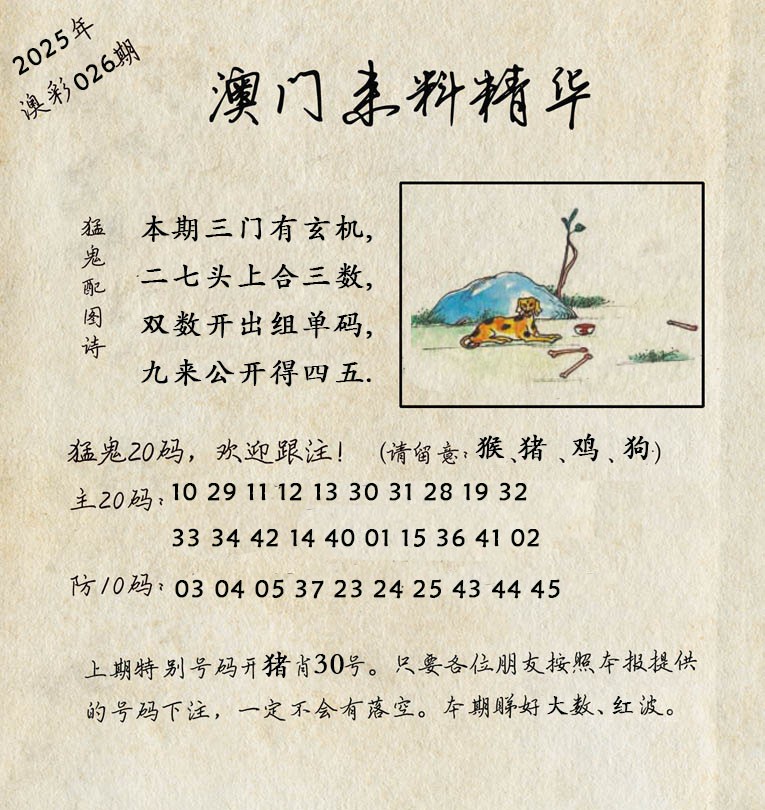 2025年
澳彩026期
澳门来料精华
猛鬼配图诗
本期三门有玄机,
二七头上合三数,
双数开出组单码,
九来公开得四五.
猛鬼20码，欢迎跟注！（请留意：猴、猪、鸡、狗）
主20码：10 29 11 12 13 30 31 28 19 32
33 34 42 14 40 01 15 36 41 02
防10码：03 04 05 37 23 24 25 43 44 45
上期特别号码开猪肖30号。只要各位朋友按照本报提供
的号码下注，一定不会有落空。本期睇好大数、红波。